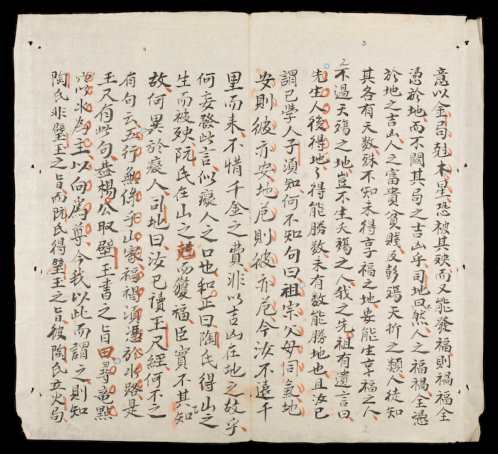 意以金局剋木星恐被其殃而又能發福則禍福全
憑於地而不關其局之吉凶乎司地曰然人之禍福全憑
於地之吉凶人之富貴貧賤及彭殤夭折之類人徒知
其各有天數殊不知未得享福之地安能生享福之人
不過夭殤之地豈不生夭殤之人我之先祖有遺言曰
先生人後得地々得能勝數未有數能勝地也且汝已
謂已學人子須知何不知句曰祖宗父母同氣地
安則彼亦安地危則彼亦危今汝不遠千
里而來不惜千金之費非以吉凶在地之故乎
何妄發此言似癡人之口也和正曰陶氏得山之
生而被殃阮氏在山之尅而獲福臣實不其知
故何異於癡人司地曰汝已讀玉尺經何不之
有句云五行無停于山家禍福須憑於水路是
玉又有此句盖楊公取璧玉書之旨曰尋竜點
穴以水為主以向為尊今我以此而謂之則知
陶氏非璧玉之旨而阮氏得璧玉之旨彼陶氏立火局